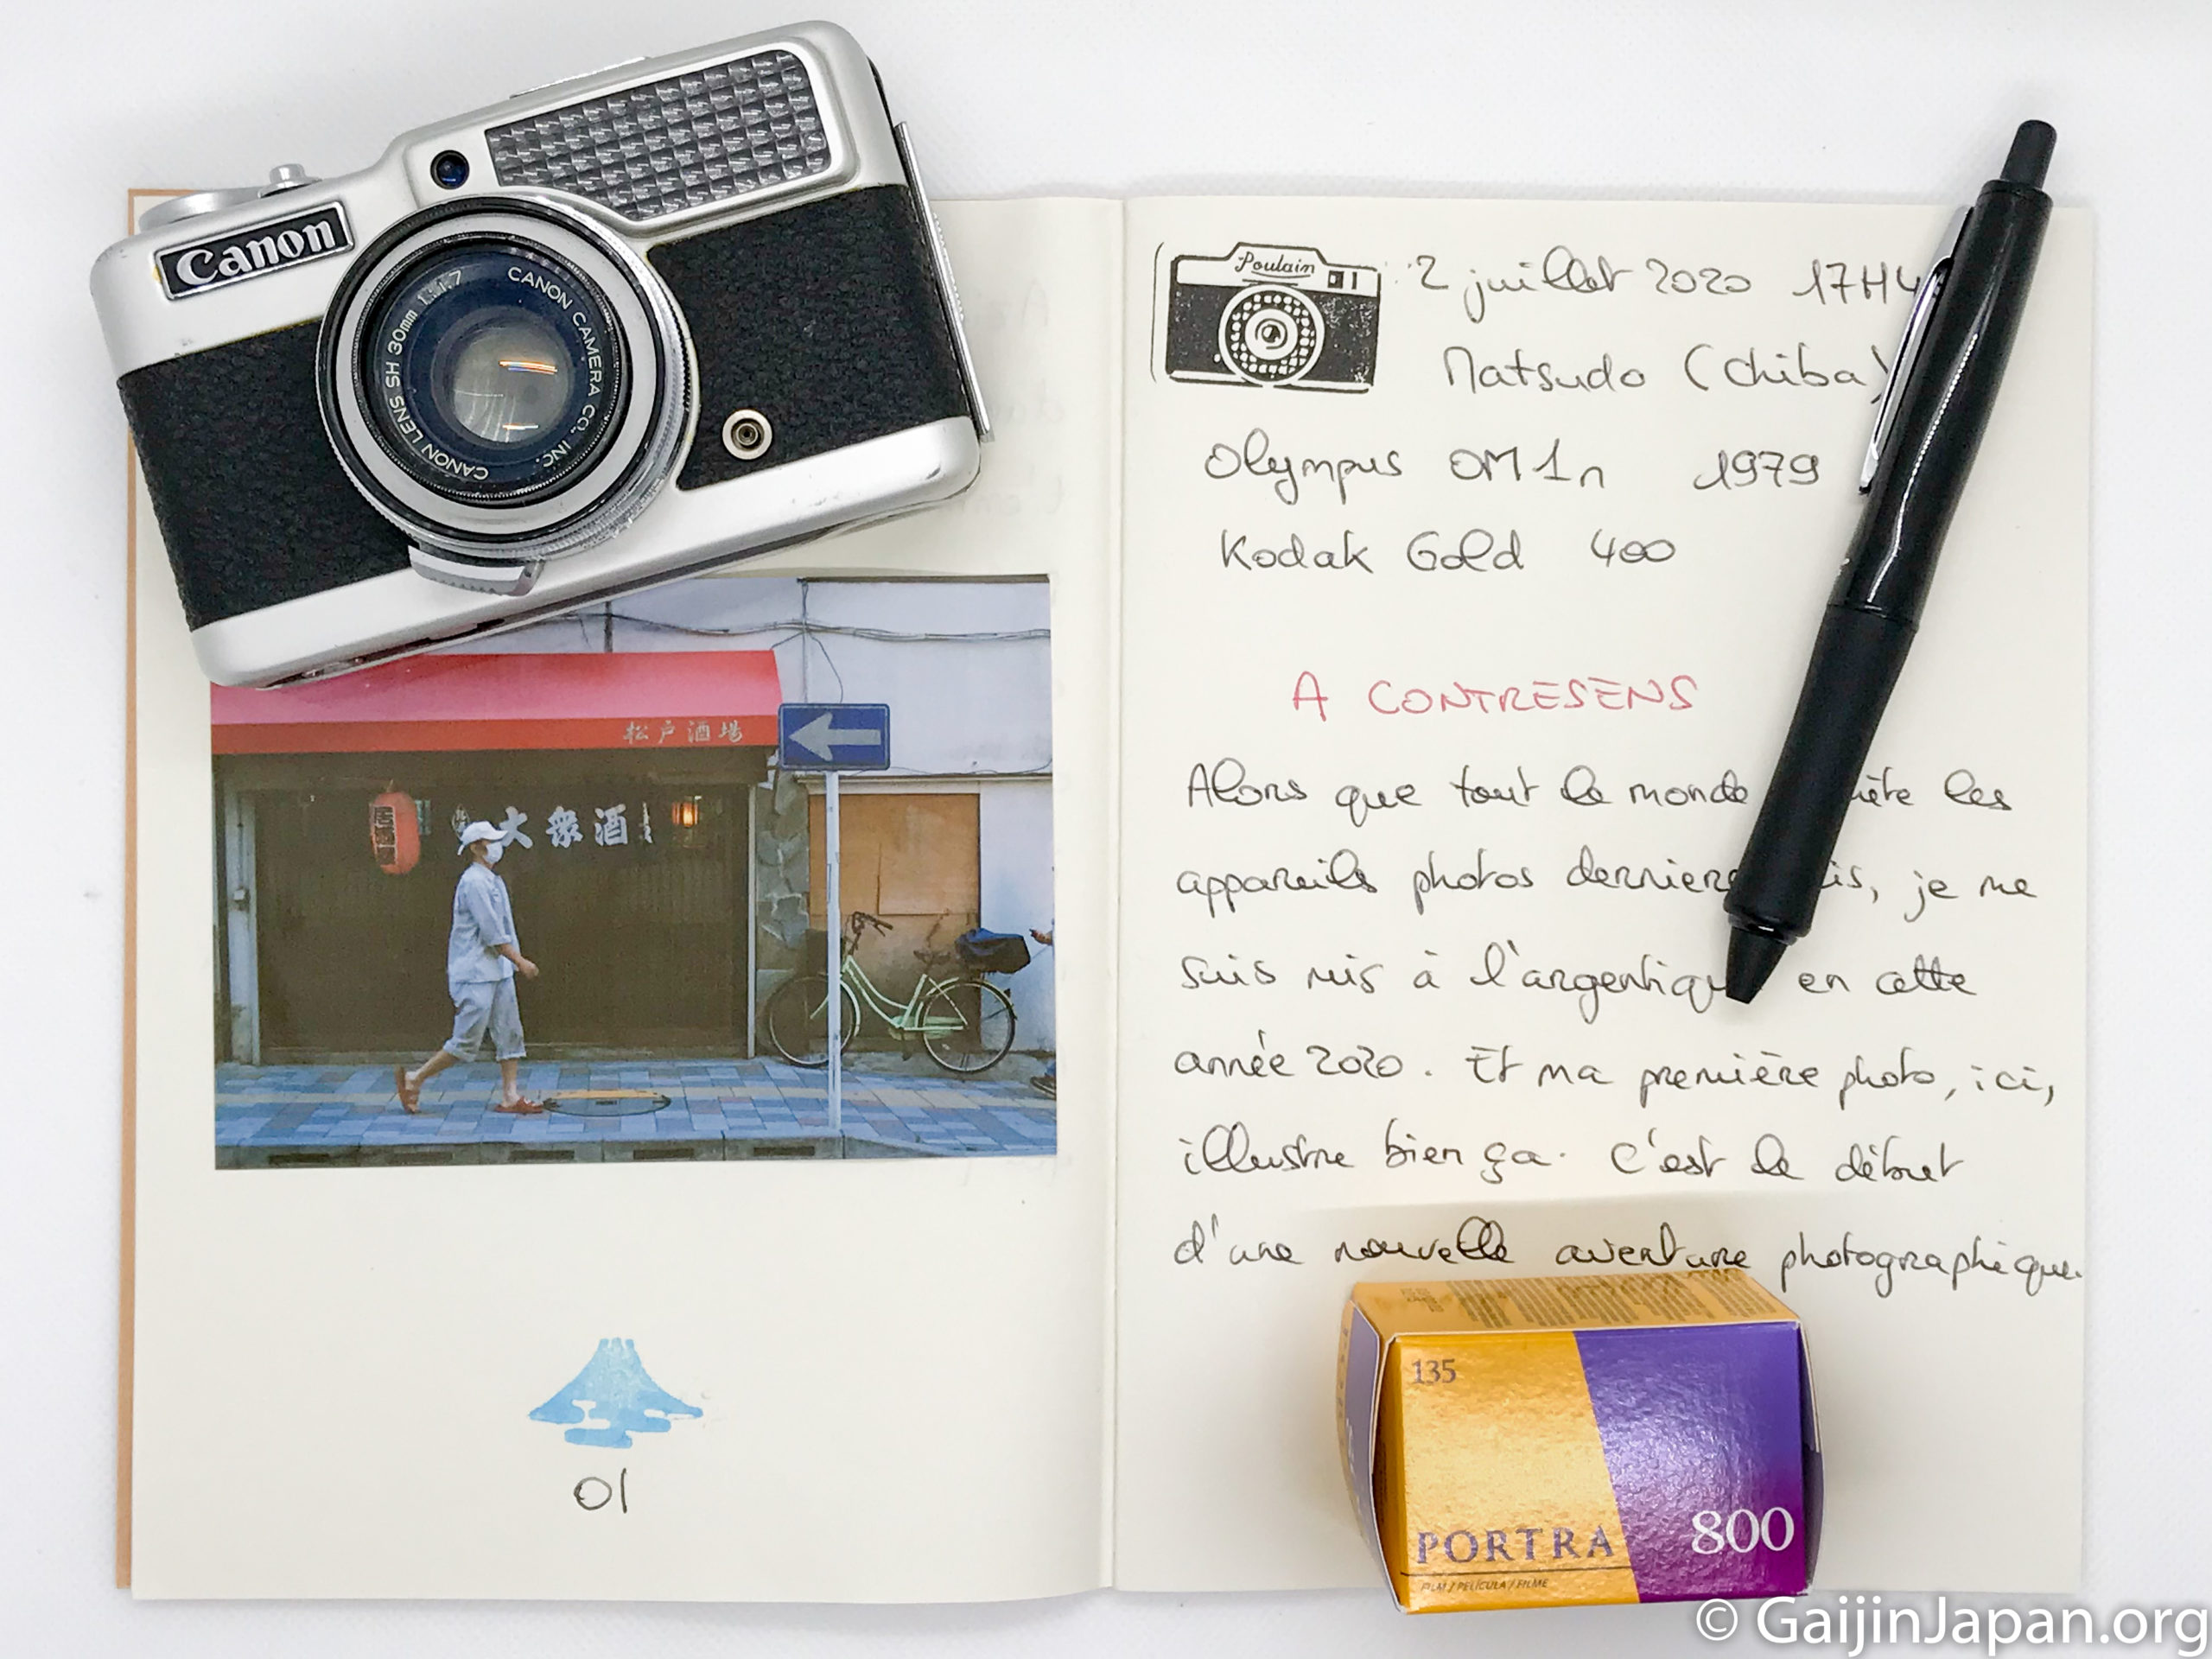 Canon
CANON CAMERA CO., INC.
CANON LENS SH 30mm 1:1.7
松戸酒場
居酒屋
大衆酒
01
Poulain
2 juillet 2020 17H4
Matsudo (Chiba)
Olympus OM1n 1979
Kodak Gold 400
A CONTRESENS
Alors que tout le monde les
appareils photos derniers je me
suis mis à l'argentique en cette
année 2020. Et ma première photo, ici,
illustre bien ça. C'est le début
d'une nouvelle aventure photographique.
135
PORTRA 800
FILM / PELÍCULA / FILME
© GaijinJapan.org